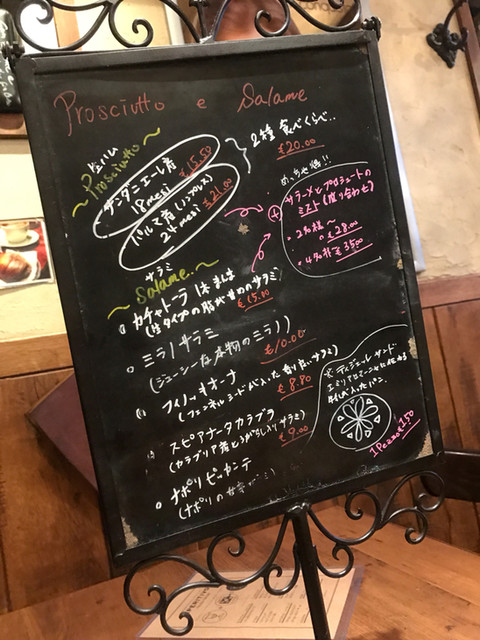 Prosciutto e Salame
生ハム
～Prosciutto～
サンダニエーレ産 €15.50
18mesi
パルマ産(ノンプレス) €21.00
24mesi
2種 食べくらべ..
€20.00
めっちゃ得!!
サラーメとプロシュートの
ミスト(盛り合わせ)
・2名様～
€28.00
・4名 €35.00
サラミ
～Salame..～
カチャトーラ 1本まま
(生タイプの脂が甘めのサラミ)
€15.00
ミラノサラミ
(ジューシーな本物のミラノ)
€10.00
フィノッキオーナ
(フェンネルシードが入った香り高いサラミ)
€8.80
スピアナータカラブラ
(カラブリア産とうがらし入りサラミ)
€9.00
ナポリピッカンテ
(ナポリの
ティジェール サンド
入ったパン.
1Pezzo €150